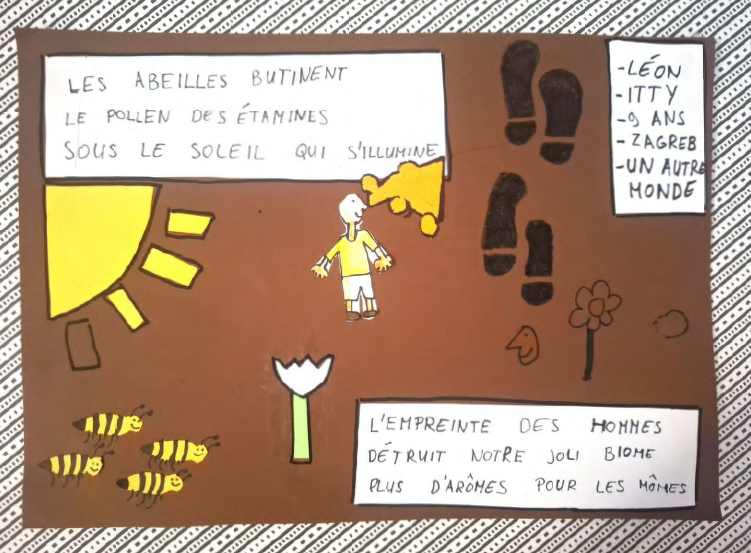 LES ABEILLES BUTINENT
LE POLLEN DES ÉTAMINES
SOUS LE SOLEIL QUI S'ILLUMINE
-LÉON
-ITTY
-9 ANS
-ZAGREB
-UN AUTRE
MONDE
L'EMPREINTE DES HOMMES
DÉTRUIT NOTRE JOLI BIOME
PLUS D'ARÔMES POUR LES MÔMES